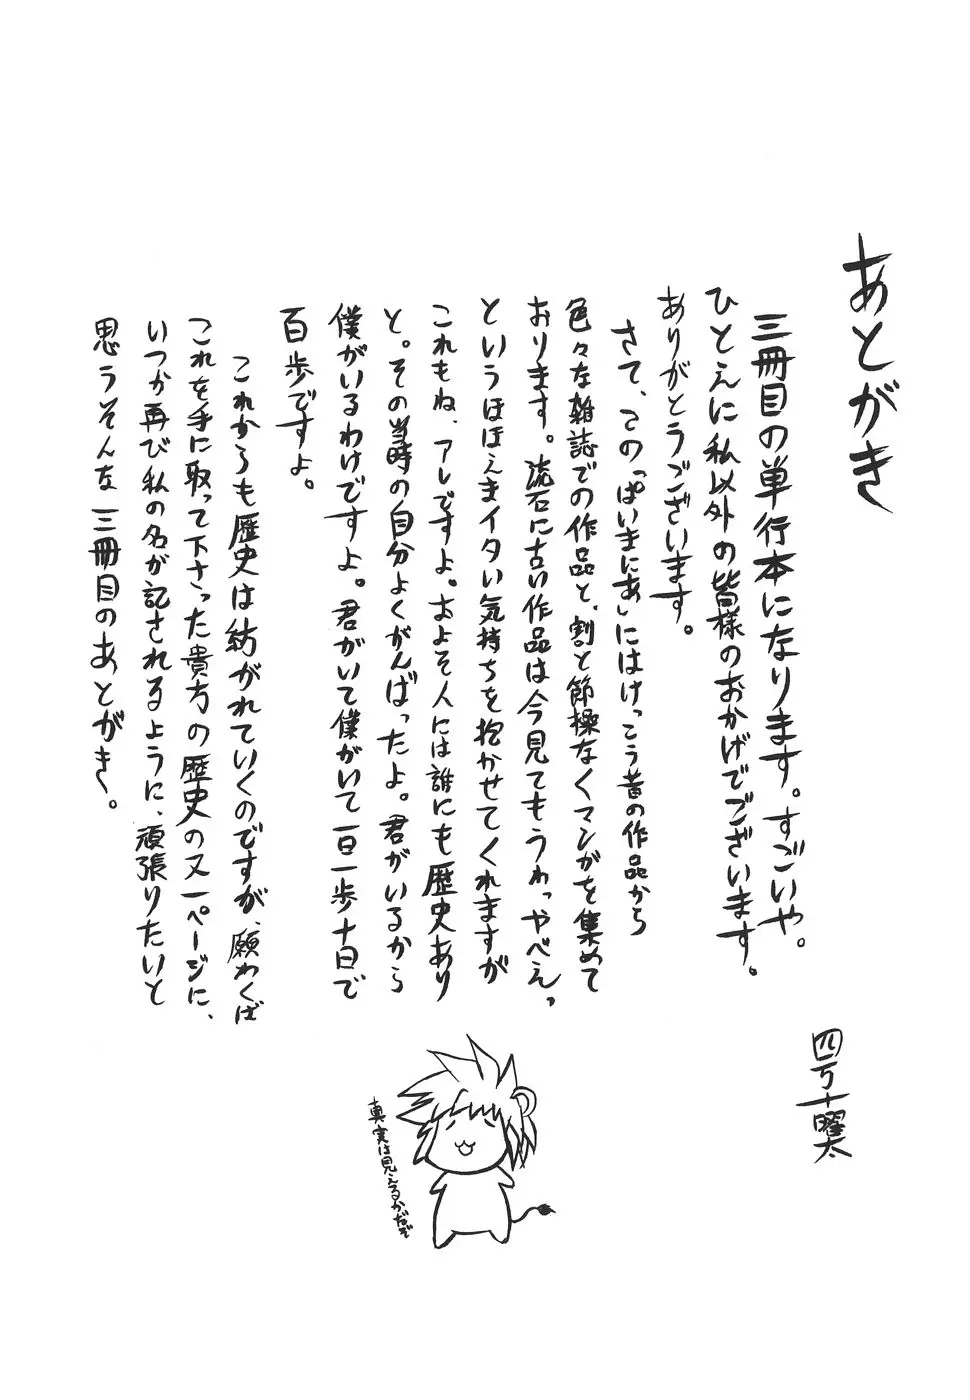 あとがき
四万十曜太
三冊目の単行本になります。すごいや。
ひとえに私以外の皆様のおかげでございます。
ありがとうございます。
さて、この「ぱいまにあ」にはけっこう昔の作品から
色々な雑誌での作品と、割と節操なくマンガを集めて
おります。流石に古い作品は今見てもうわっやべえっ
というほほえまイタい気持ちを抱かせてくれますが
これもね、アレですよ。およそ人には誰にも歴史あり
と。その当時の自分よくがんばったよ。君がいるから
僕がいるわけですよ。君がいて僕がいて一日一歩十日で
百歩ですよ。
これからも歴史は紡がれていくのですが、願わくば
これを手に取って下さった貴方の歴史の又一ページに、
いつか再び私の名が記されるように、頑張りたいと
思うそんな三冊目のあとがき。
真実は見えるかだぞ